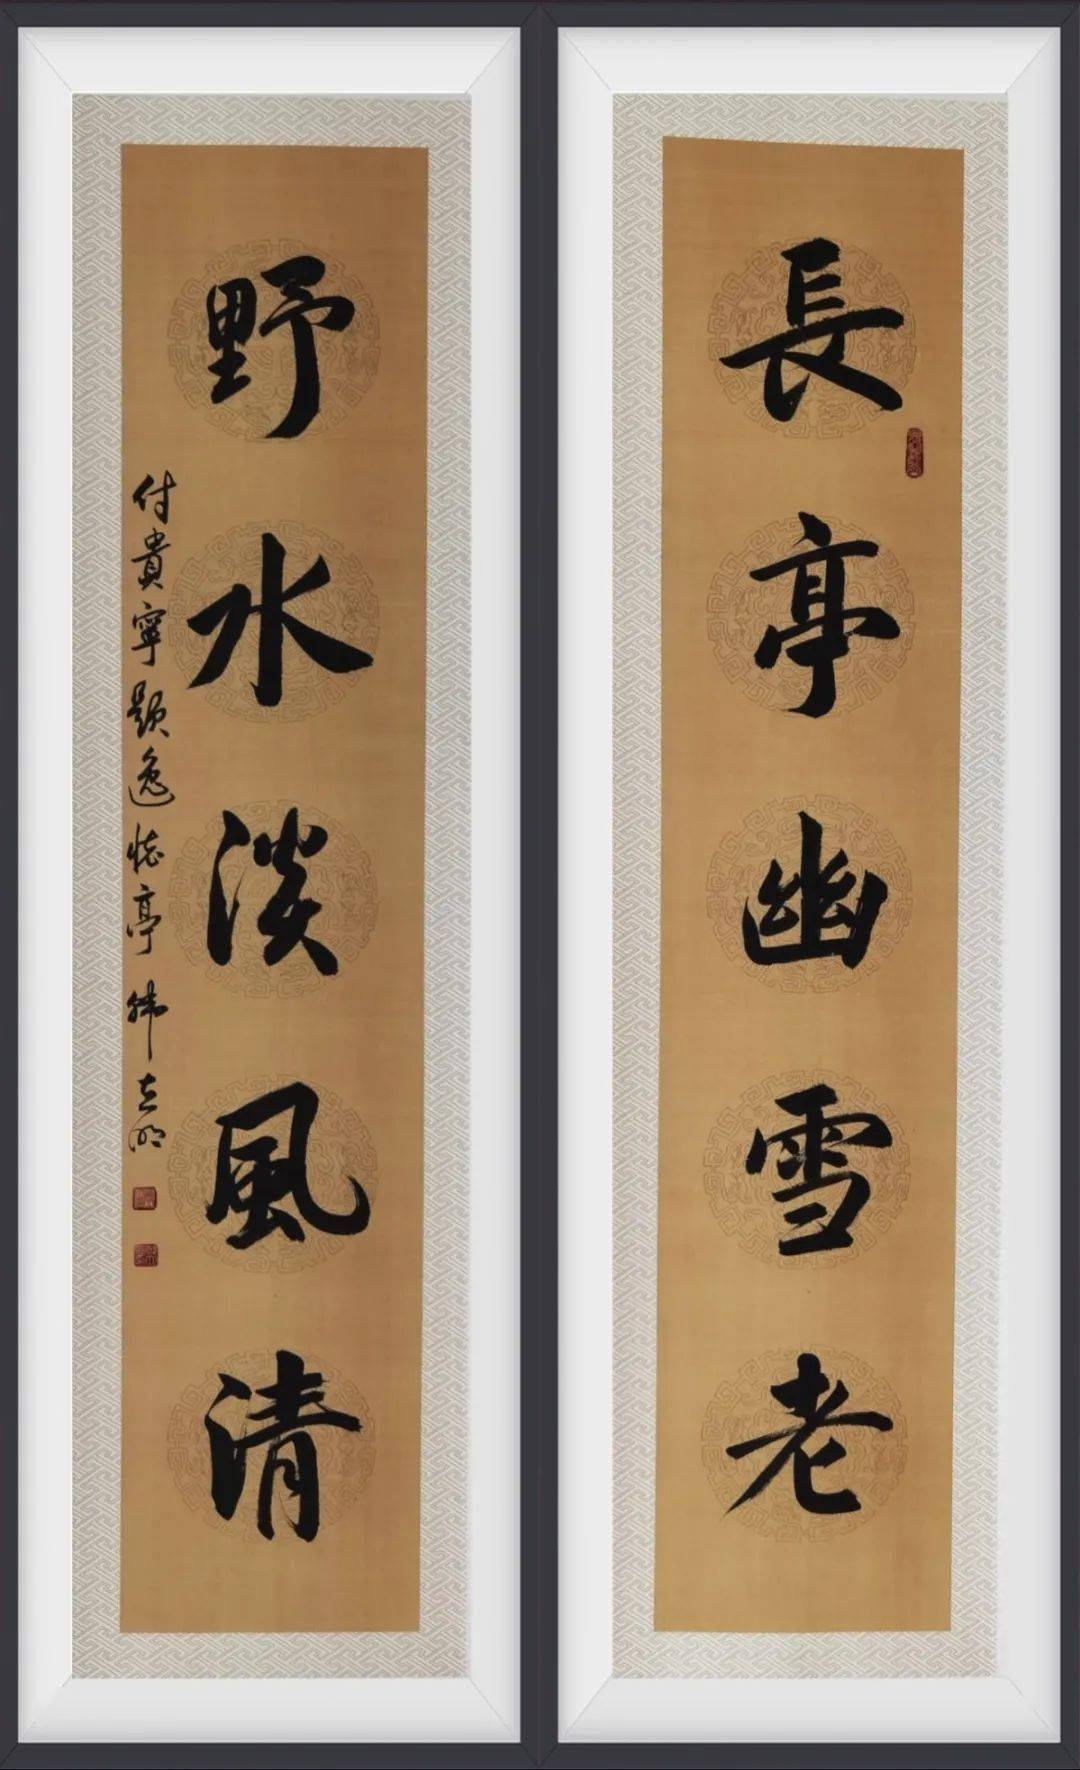 長亭幽雪老
野水淡風清
付貴寧題逸懷亭 韩立明